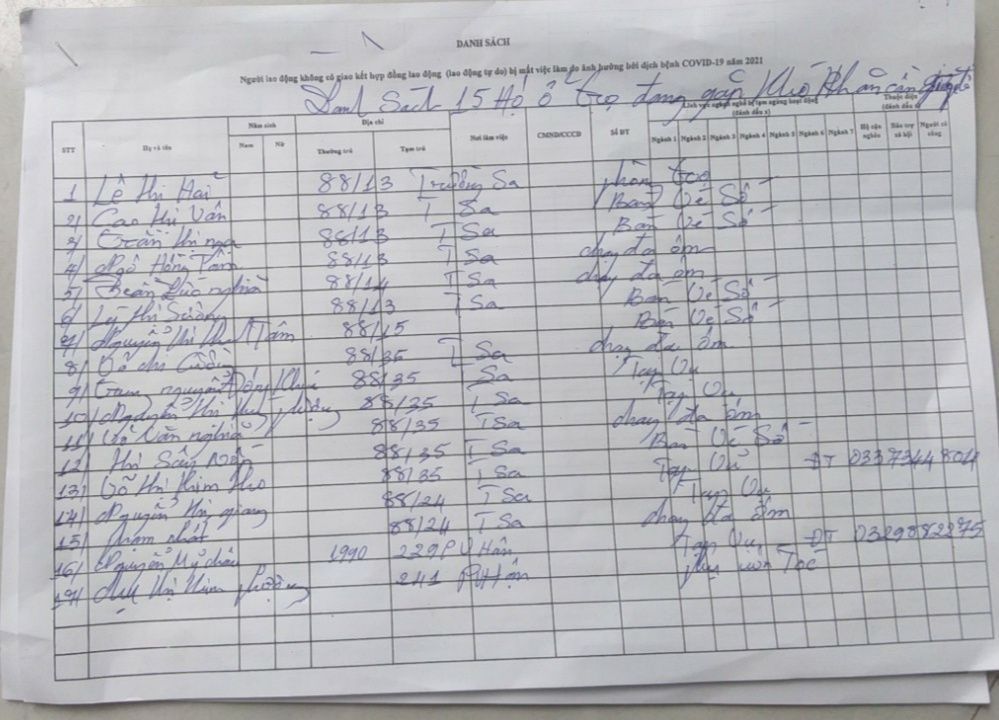 DANH SÁCH
Người lao động không có giao kết hợp đồng lao động (lao động tự do) bị mất việc làm do ảnh hưởng bởi dịch bệnh COVID-19 năm 2021
Danh Sách 15 Hộ ở trọ đang gặp khó khăn cần giúp đỡ
STT Họ và tên Năm sinh Địa chỉ Nơi làm việc CMND/CCCD Số ĐT Lĩnh vực ngành nghề bị tạm ngừng hoạt động (đánh dấu x) Thuộc diện (đánh dấu x)
Nam Nữ Thường trú Tạm trú Ngành 1 Ngành 2 Ngành 3 Ngành 4 Ngành 5 Ngành 6 Ngành 7 Hộ cận nghèo Bảo trợ xã hội Người có công
1 Lê Thị Hai 88/13 Trường Sa phòng trọ
2/ Cao Thị Vân 88/13 T Sa Bán Vé Số
3/ Trần Thị nga 88/13 T Sa Bán Vé Số
4/ Ngô Hồng Tâm 88/13 T Sa chạy đa ôm
5/ Trần Đức nghĩa 88/14 T Sa chạy đa ôm
6/ Lý Thị Sương 88/13 T Sa Bán Vé Số
7/ Nguyễn Thị Tâm 88/15 Bán Vé Số
8/ Võ 88/35 T Sa chạy đa ôm
9/ nguyễn 88/35 T Sa Tạp Vụ
10/ Nguyễn Thị phượng 88/35 T Sa Tạp Vụ
11/ Võ Văn nghĩa 88/35 T Sa chạy đa ôm
12/ Thị 88/35 T Sa Bán Vé Số
13/ Võ Thị Kim 88/35 T Sa Tạp Vụ ĐT 0337344804
14/ Nguyễn Thị giang 88/24 T Sa Tạp Vụ
15/ phạm nhất 88/24 T Sa chạy đa ôm
16/ Nguyễn Mỹ châu 1990 229 P V Hân Tạp Vụ ĐT 0329882275
17/ Thị Kim phượng 241 P V Hân Tóc